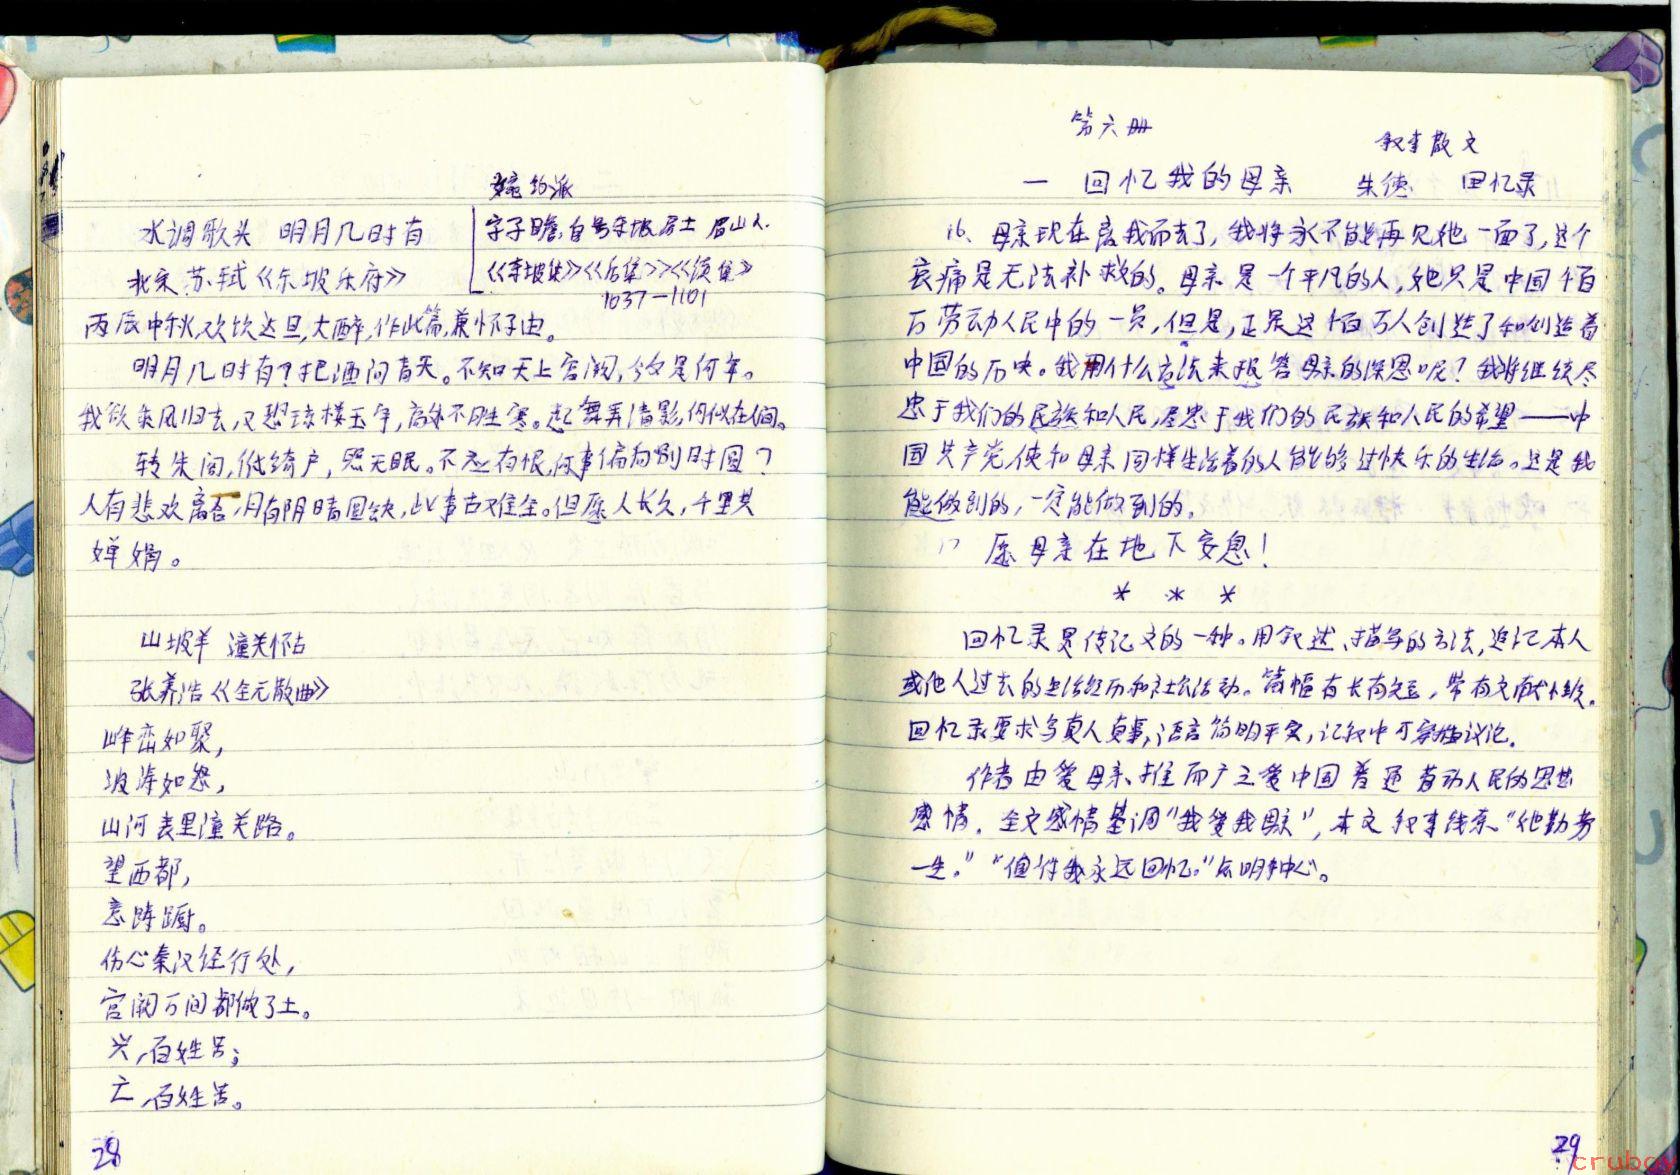 婉约派
水调歌头 明月几时有
字子瞻,自号东坡居士 眉山人.
北宋 苏轼《东坡乐府》
《东坡集》《后集》《续集》
1037—1101
丙辰中秋,欢饮达旦,大醉,作此篇,兼怀子由。
明月几时有?把酒问青天。不知天上宫阙,今夕是何年。
我欲乘风归去,又恐琼楼玉宇,高处不胜寒。起舞弄清影,何似在人间。
转朱阁,低绮户,照无眠。不应有恨,何事偏向别时圆?
人有悲欢离合,月有阴晴圆缺,此事古难全。但愿人长久,千里共
婵娟。
山坡羊 潼关怀古
张养浩《全元散曲》
峰峦如聚,
波涛如怒,
山河表里潼关路。
望西都,
意踌蹰。
伤心秦汉经行处,
宫阙万间都做了土。
兴,百姓苦;
亡,百姓苦。
28
第六册
叙事散文
一 回忆我的母亲 朱德 回忆录
16、母亲现在离我而去了,我将永不能再见她一面了,这个
哀痛是无法补救的。母亲是一个平凡的人,她只是中国千百
万劳动人民中的一员,但是,正是这千百万人创造了和创造着
中国的历史。我用什么方法来报答母亲的深恩呢?我将继续尽
忠于我们的民族和人民,尽忠于我们的民族和人民的希望——中
国共产党,使和母亲同样生活着的人能够过快乐的生活。这是我
能做到的,一定能做到的。
17 愿母亲在地下安息!
* * *
回忆录是传记文的一种。用叙述、描写的方法,追记本人
或他人过去的生活经历和社会活动。篇幅有长有短,带有文献性.
回忆录要求写真人真事,语言简明平实,记叙中可穿插议论.
作者由爱母亲、推而广之爱中国普通劳动人民的思想
感情. 全文感情基调"我爱我母亲",本文叙事线索"她勤劳
一生。""值得我永远回忆。"点明中心。
29
cruboy